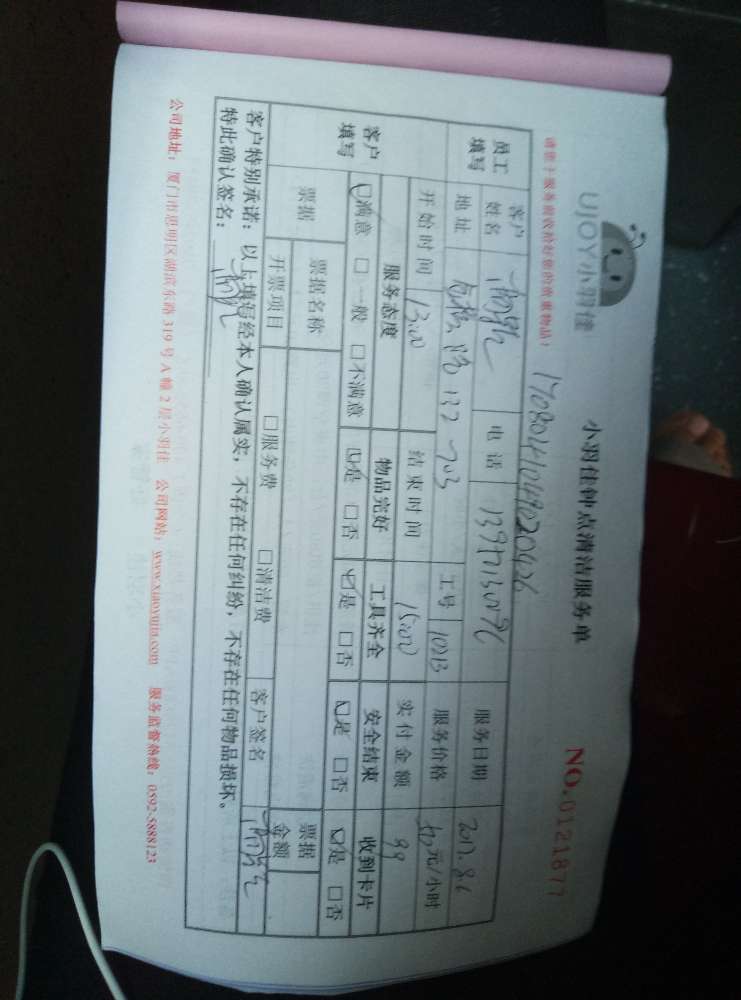 UJOY小羽佳
小羽佳钟点清洁服务单
NO.0121877
请您于服务前收拾好您的贵重物品!
员工填写
客户姓名
电话
服务日期 2017.8.6
地址
132-703
工号 10213
服务价格
元/小时
客户填写
开始时间 13:00
结束时间 15:00
实付金额 99
服务态度 物品完好 工具齐全 安全结束 收到卡片
☑满意 □一般 □不满意 ☑是 □否 ☑是 □否 ☑是 □否 ☑是 □否
票据
票据名称
票据金额
开票项目 □服务费 □清洁费
客户签名
客户特别承诺:以上填写经本人确认属实,不存在任何纠纷,不存在任何物品损坏。
特此确认签名:
公司地址:厦门市思明区湖滨东路 319 号 A 幢 2 层小羽佳 公司网站:www.xiaoyujia.com 服务监督热线:0592-5888123